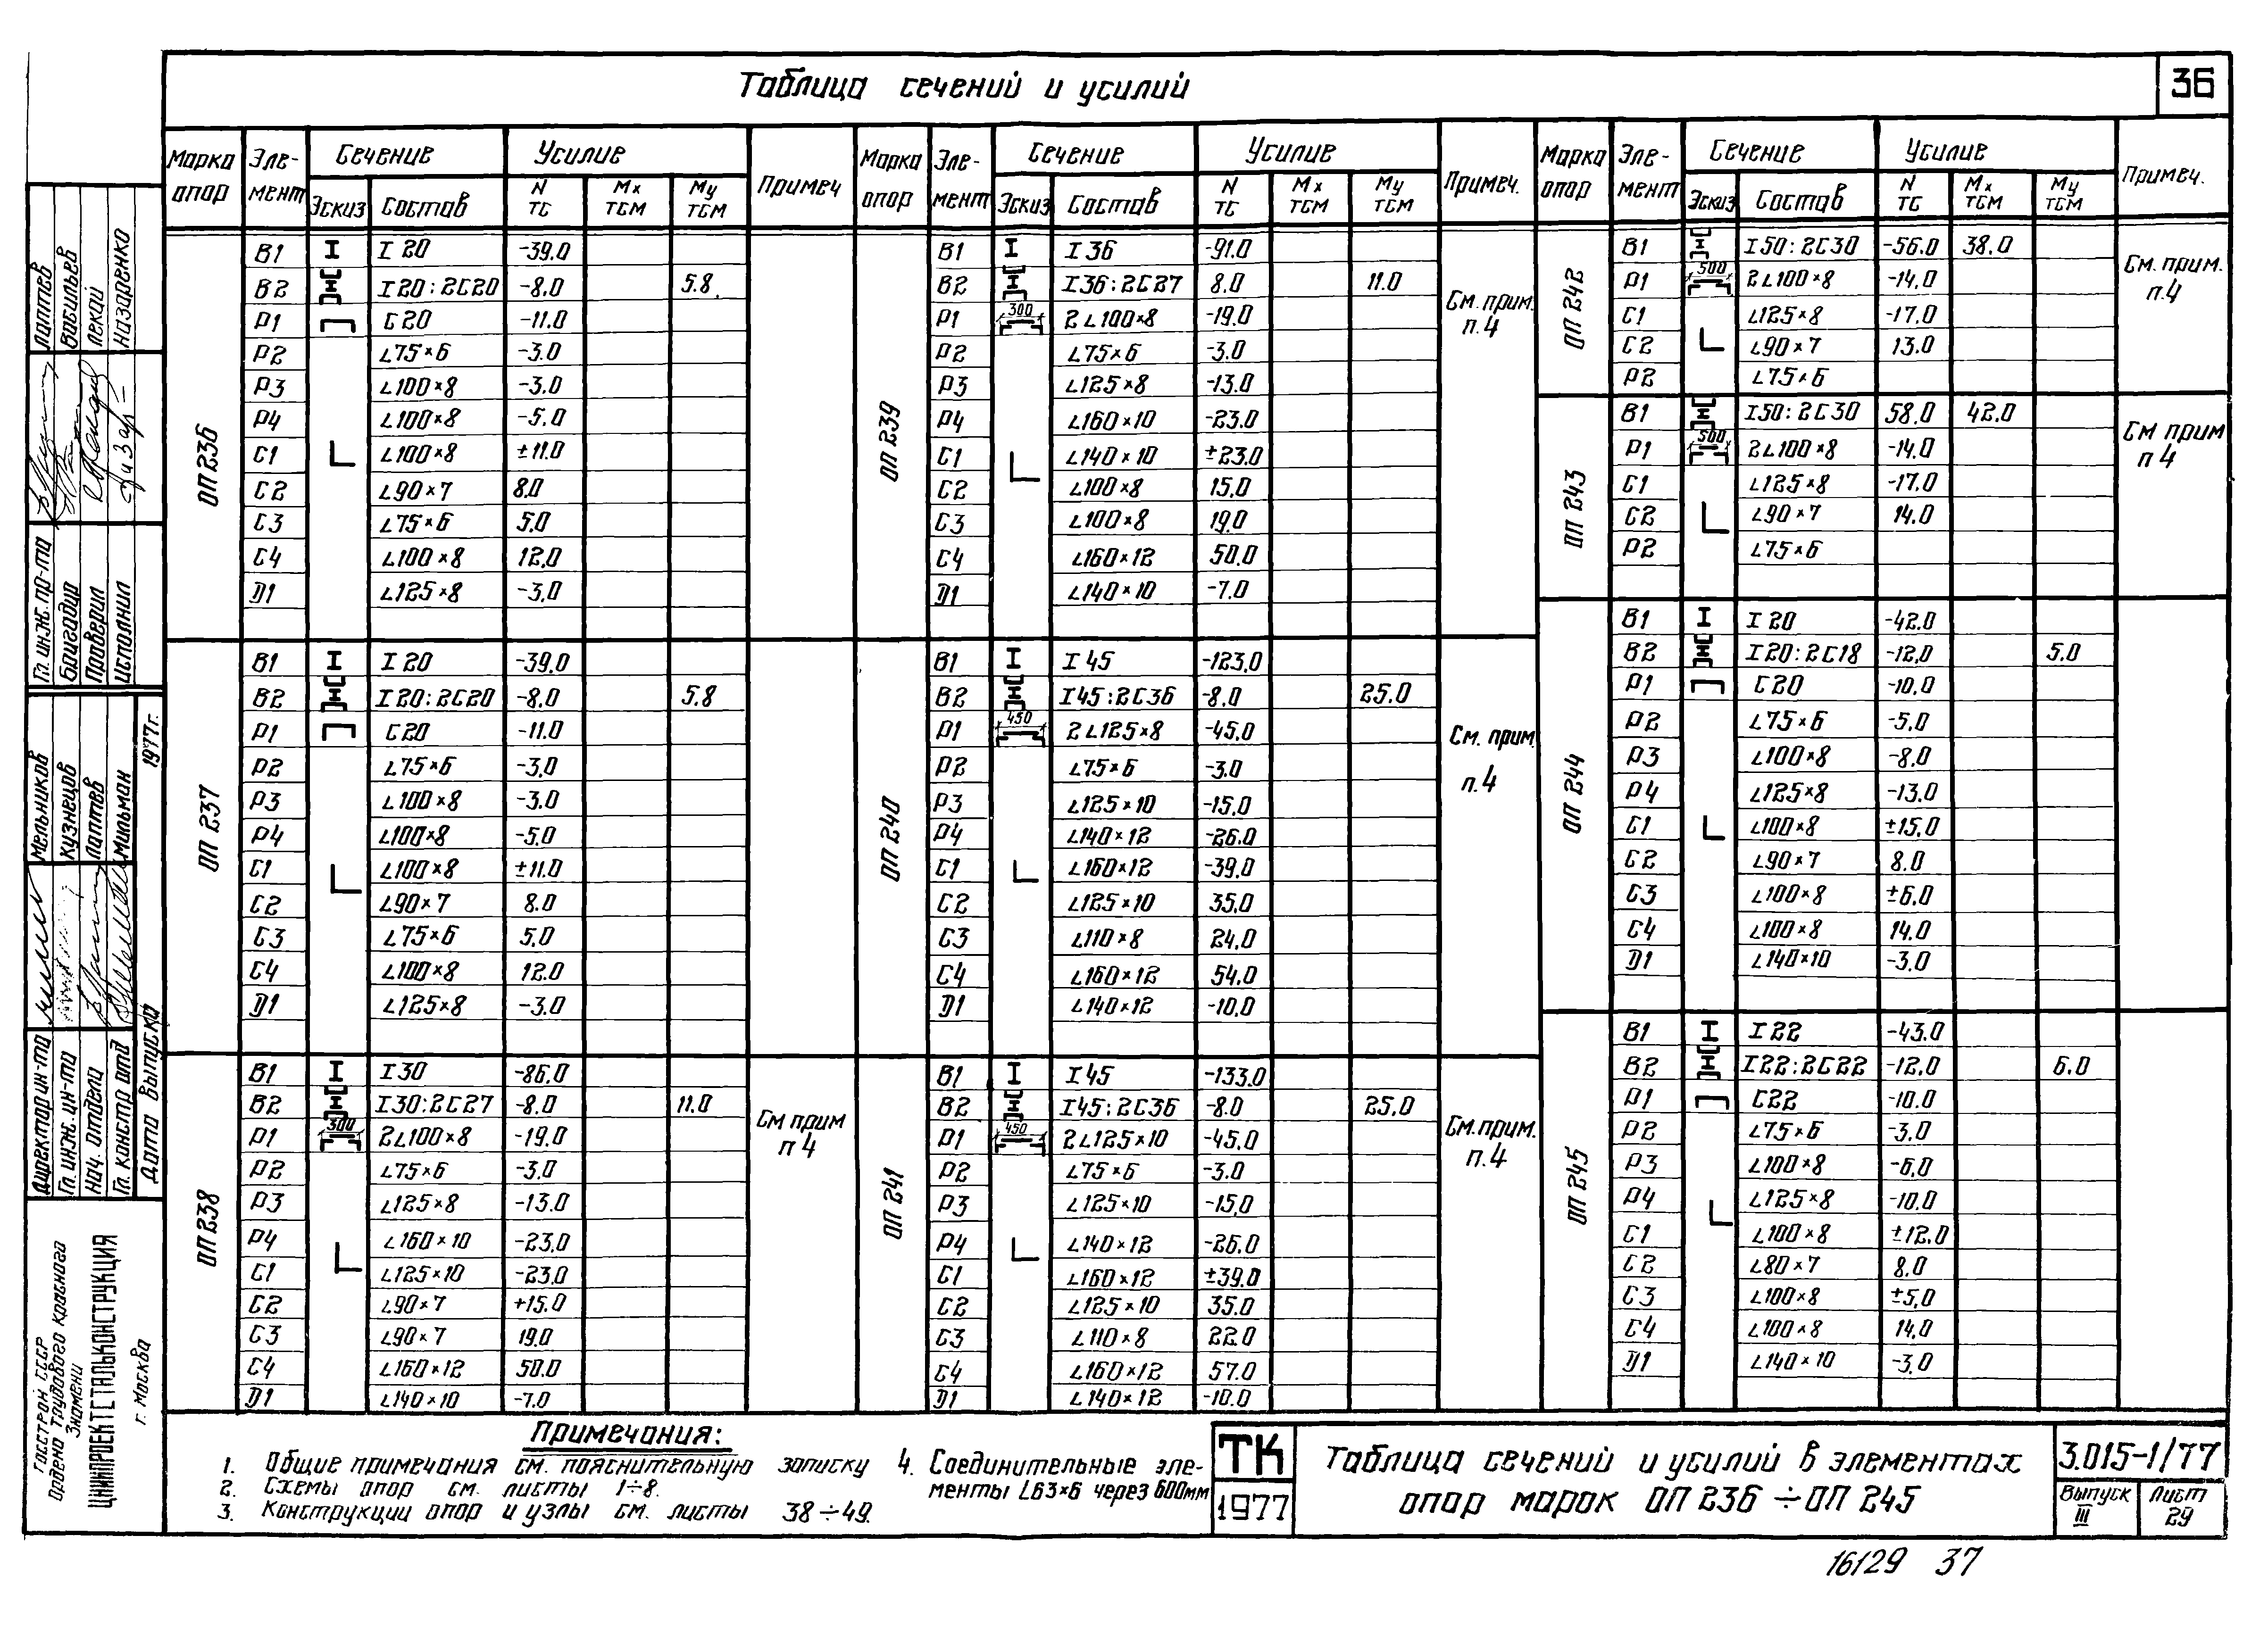 Таблица сечений и усилий
36
Марка опор Эле-мент Сечение Усилие Примеч
Эскиз Состав N тс Mx тсм My тсм
ОП 236
В1 I 20 -39.0
В2 I 20:2С20 -8.0 5.8
Р1 С20 -11.0
Р2 L75×6 -3.0
Р3 L100×8 -3.0
Р4 L100×8 -5.0
С1 L100×8 ±11.0
С2 L90×7 8.0
С3 L75×6 5.0
С4 L100×8 12.0
D1 L125×8 -3.0
ОП 237
В1 I 20 -39.0
В2 I 20:2С20 -8.0 5.8
Р1 С20 -11.0
Р2 L75×6 -3.0
Р3 L100×8 -3.0
Р4 L100×8 -5.0
С1 L100×8 ±11.0
С2 L90×7 8.0
С3 L75×6 5.0
С4 L100×8 12.0
D1 L125×8 -3.0
ОП 238
В1 I 30 -86.0
В2 I 30:2С27 -8.0 11.0
Р1 300 2L100×8 -19.0
Р2 L75×6 -3.0
Р3 L125×8 -13.0
Р4 L160×10 -23.0
С1 L125×10 -23.0
С2 L90×7 +15.0
С3 L90×7 19.0
С4 L160×12 50.0
D1 L140×10 -7.0
См прим
п 4
Марка опор Эле-мент Сечение Усилие Примеч.
Эскиз Состав N тс Mx тсм My тсм
ОП 239
В1 I 36 -91.0
В2 I 36:2С27 8.0 11.0
Р1 300 2L100×8 -19.0
Р2 L75×6 -3.0
Р3 L125×8 -13.0
Р4 L160×10 -23.0
С1 L140×10 ±23.0
С2 L100×8 15.0
С3 L100×8 19.0
С4 L160×12 50.0
D1 L140×10 -7.0
См. прим.
п. 4
ОП 240
В1 I 45 -123.0
В2 I 45:2С36 -8.0 25.0
Р1 450 2L125×8 -45.0
Р2 L75×6 -3.0
Р3 L125×10 -15.0
Р4 L140×12 -26.0
С1 L160×12 -39.0
С2 L125×10 35.0
С3 L110×8 24.0
С4 L160×12 54.0
D1 L140×12 -10.0
См. прим.
п. 4
ОП 241
В1 I 45 -133.0
В2 I 45:2С36 -8.0 25.0
Р1 450 2L125×10 -45.0
Р2 L75×6 -3.0
Р3 L125×10 -15.0
Р4 L140×12 -26.0
С1 L160×12 ±39.0
С2 L125×10 35.0
С3 L110×8 22.0
С4 L160×12 57.0
D1 L140×12 -10.0
См. прим.
п. 4
Марка опор Эле-мент Сечение Усилие Примеч.
Эскиз Состав N тс Mx тсм My тсм
ОП 242
В1 I 50:2С30 -56.0 38.0
Р1 500 2L100×8 -14.0
С1 L125×8 -17.0
С2 L90×7 13.0
Р2 L75×6
См. прим.
п. 4
ОП 243
В1 I 50:2С30 58.0 42.0
Р1 500 2L100×8 -14.0
С1 L125×8 -17.0
С2 L90×7 14.0
Р2 L75×6
См прим
п 4
ОП 244
В1 I 20 -42.0
В2 I 20:2С18 -12.0 5.0
Р1 С20 -10.0
Р2 L75×6 -5.0
Р3 L100×8 -8.0
Р4 L125×8 -13.0
С1 L100×8 ±15.0
С2 L90×7 8.0
С3 L100×8 ±6.0
С4 L100×8 14.0
D1 L140×10 -3.0
ОП 245
В1 I 22 -43.0
В2 I 22:2С22 -12.0 6.0
Р1 С22 -10.0
Р2 L75×6 -3.0
Р3 L100×8 -6.0
Р4 L125×8 -10.0
С1 L100×8 ±12.0
С2 L80×7 8.0
С3 L100×8 ±5.0
С4 L100×8 14.0
D1 L140×10 -3.0
Примечания:
1. Общие примечания см. пояснительную записку
2. Схемы опор см. листы 1÷8.
3. Конструкции опор и узлы см. листы 38÷49.
4. Соединительные эле-
менты L63×6 через 600мм
ТК
1977
Таблица сечений и усилий в элементах
опор марок ОП 236 ÷ ОП 245
3.015-1/77
Выпуск III
Лист 29
16129 37
Гл. инж. пр-та Лаптев
Бригадир Васильев
Проверил Лекай
Исполнил Назаренко
Директор ин-та Мельников
Гл. инж. ин-та Кузнецов
Нач. отдела Лаптев
Гл. констр отд Мильман
Дата выпуска 1977г.
Госстрой СССР
Ордена трудового красного
знамени
ЦНИИПРОЕКТСТАЛЬКОНСТРУКЦИЯ
г. Москва